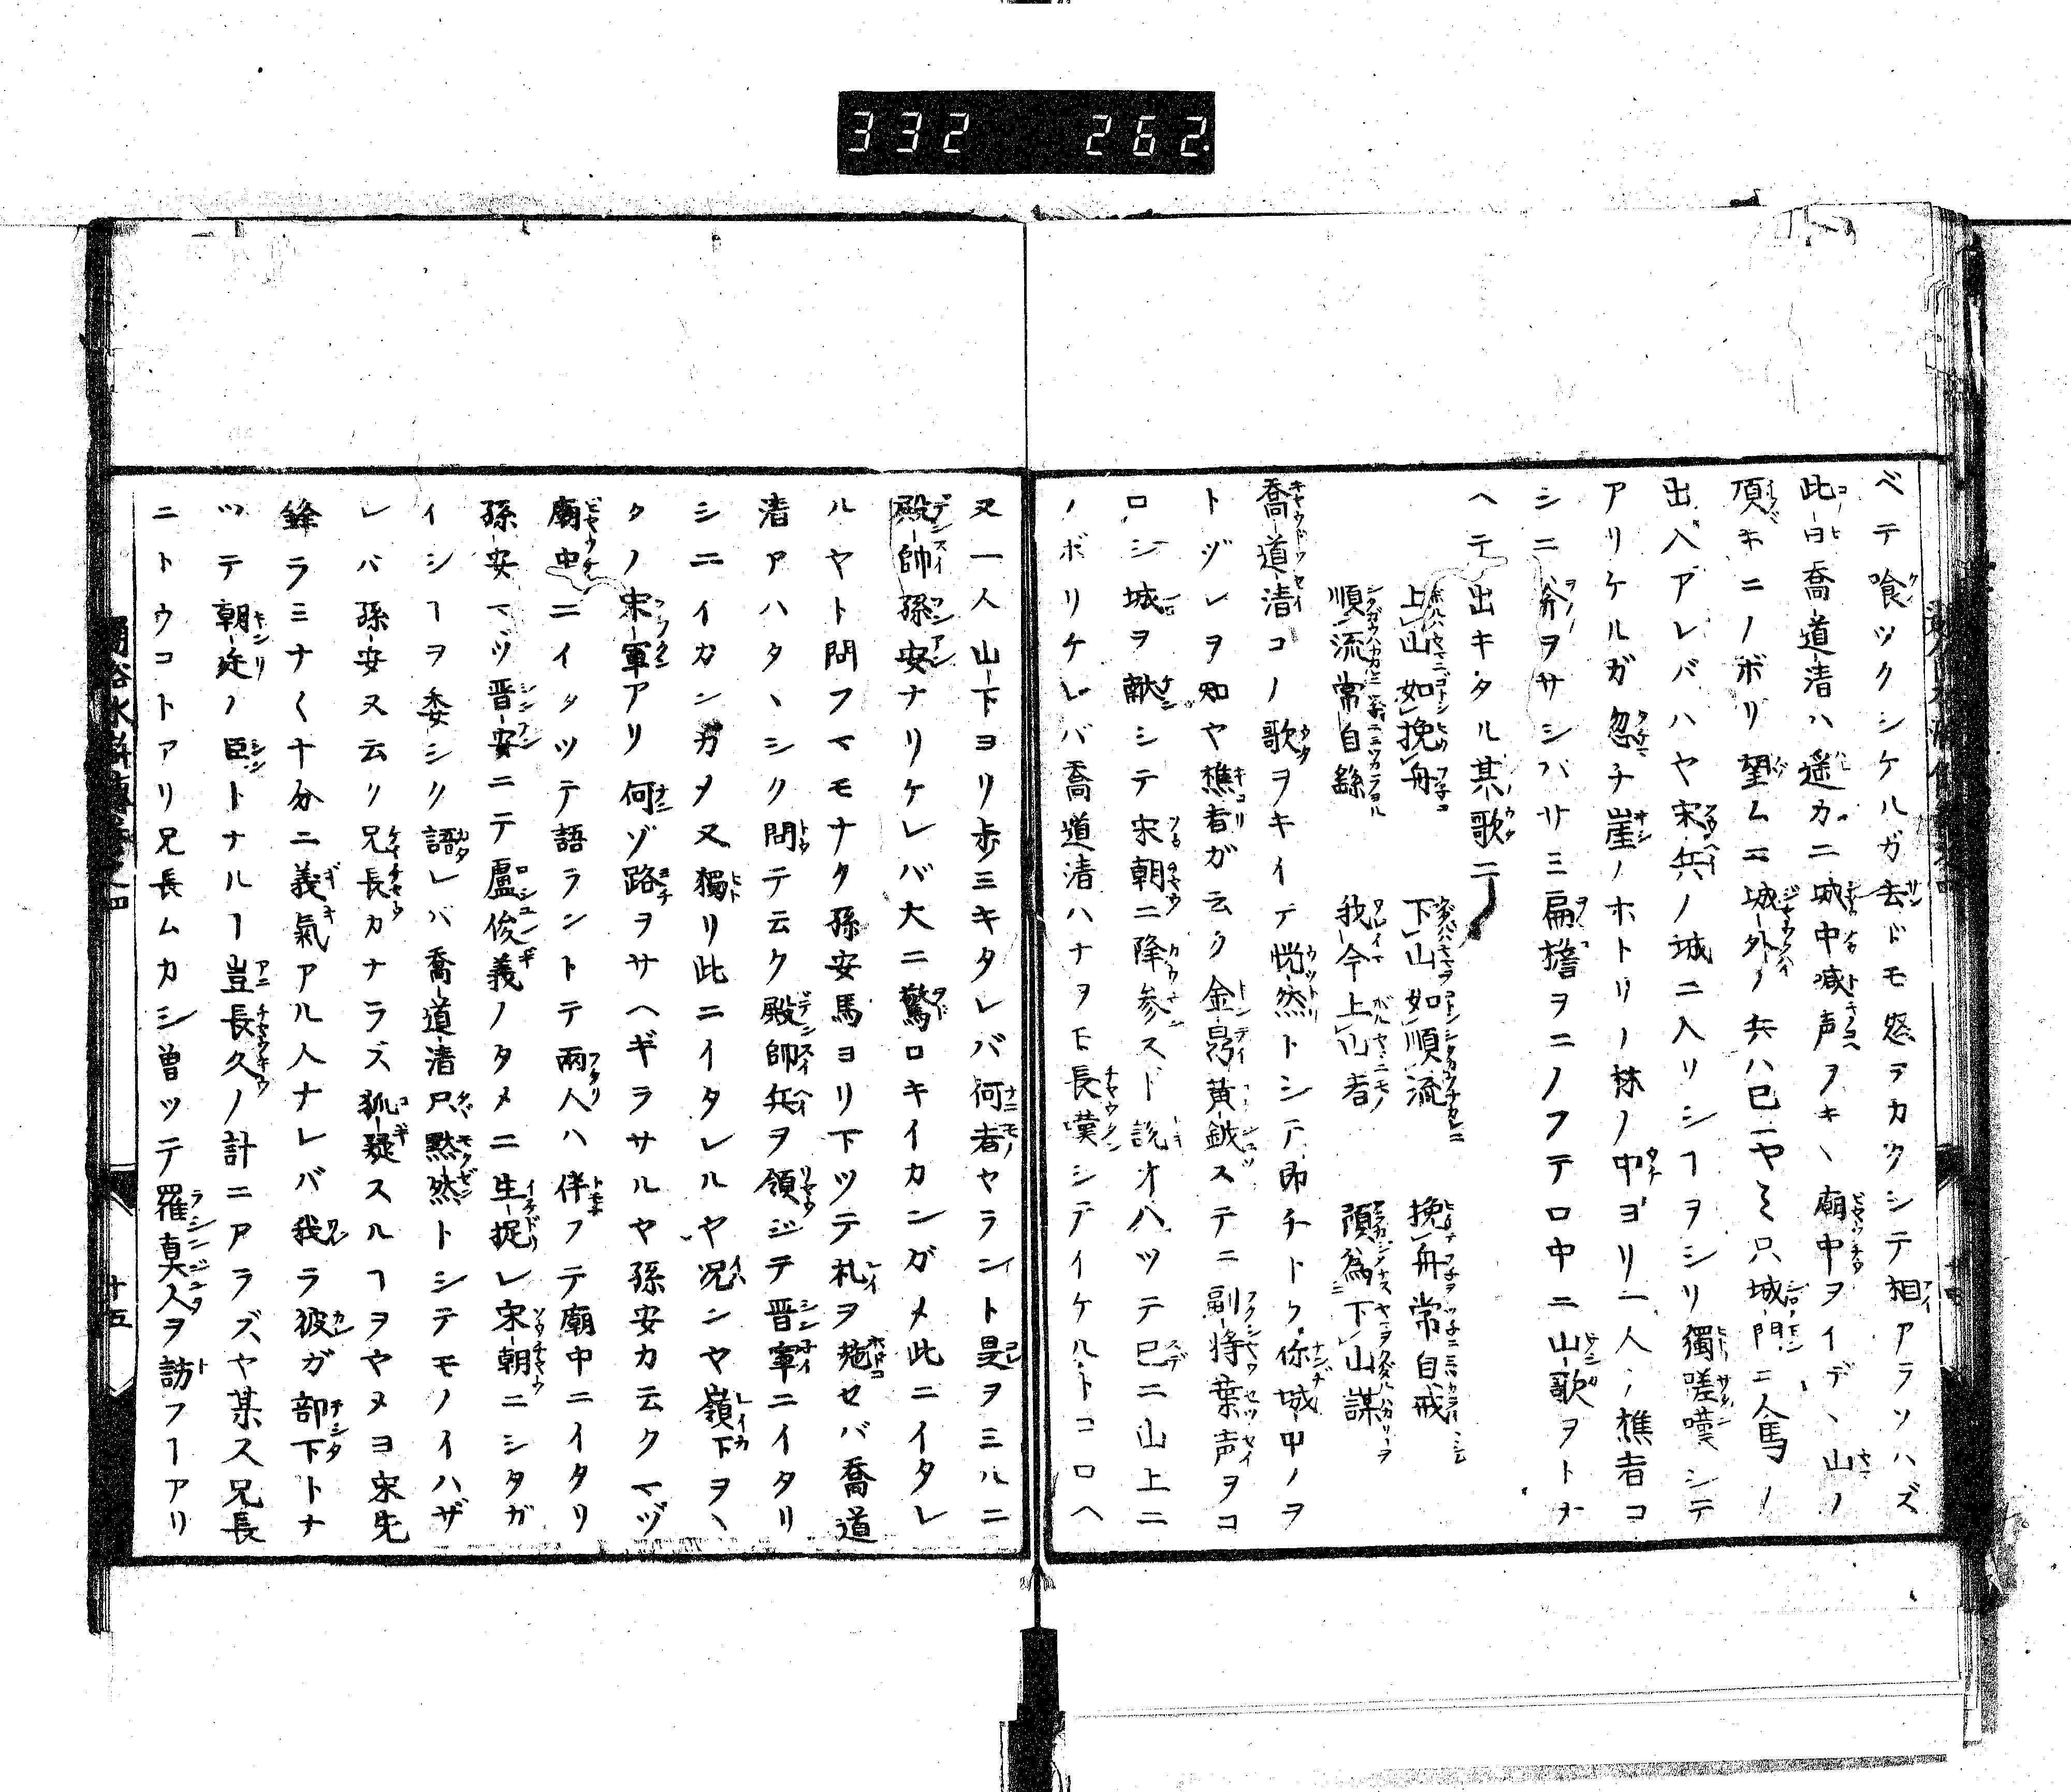 332 262.
ベテ喰ツクシケルガ去ドモ怒ヲカクシテ相アラソハズ
此日喬道清ハ遥カニ城中减声ヲキヽ廟中ヲイデヽ山ノ
頂キニノボリ望ムニ城外ノ兵ハ已ニヤミ只城門ニ人馬ノ
出入アレバハヤ宋兵ノ城ニ入リシヿヲシリ獨嗟嘆シテ
アリケルガ忽チ崖ノホトリノ林ノ中ヨリ一人ノ樵者コ
シニ斧ヲサシバサミ扁擔ヲニノフテロ中ニ山歌ヲトナ
ヘテ出キタル其歌ニ
上山如挽舟 下山如順流 挽舟常自戒
順流常自繇 我今上山者 預爲下山謀
喬道清コノ歌ヲキイテ恍然トシテ即チトク你城中ノヲ
トヅレヲ知ヤ樵者ガ云ク金鼎黄鉞ステニ副将葉声ヲコ
ロシ城ヲ献シテ宋朝ニ降参スド說オハツテ已ニ山上ニ
ノボリケレバ喬道清ハナヲヒ長嘆シテイケルトコロヘ
又一人山下ヨリ歩ミキタレバ何者ヤラント是ヲミルニ
殿帥孫安ナリケレバ大ニ驚ロキイカンガメ此ニイタレ
ルヤト問フマモナク孫安馬ヨリ下ツテ礼ヲ施セバ喬道
清アハタヽシク問テ云ク殿帥兵ヲ領ジテ晋寧ニイタリ
シニイカンガヲ又獨リ此ニイタレルヤ况ンヤ嶺下ヲヽ
クノ宋軍アリ何ゾ路ヲサヘギラサルヤ孫安カ云クマヅ
廟中ニイタツテ語ラントテ兩人ハ伴フテ廟中ニイタリ
孫安マヅ晋安ニテ盧俊義ノタメニ生捉レ宋朝ニシタガ
イシヿヲ委シク語レバ喬道清尸黙然トシテモノイハザ
レバ孫安又云ク兄長カナラズ狐疑スルヿヲヤメヨ宋先
鋒ラミナ〱十分ニ義氣アル人ナレバ我ラ彼ガ部下トナ
ツテ朝廷ノ臣トナルヿ豈長久ノ計ニアラズヤ某ス兄長
ニトウコトアリ兄長ムカシ曽ツテ羅真人ヲ訪フヿアリ
十五